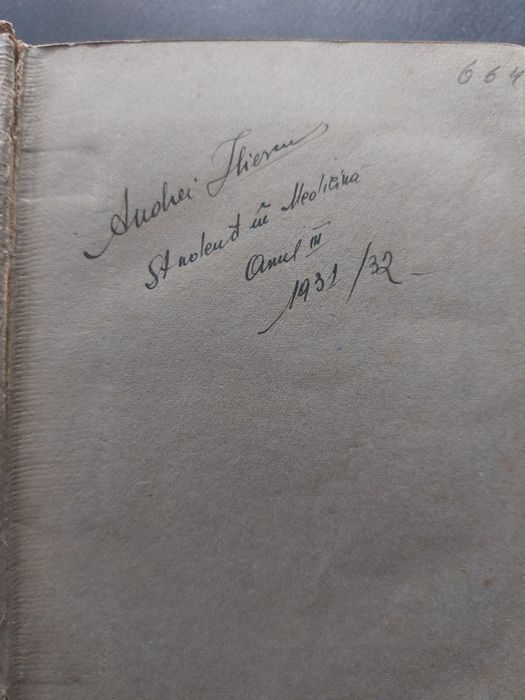 664
Andrei Iliescu
Student în Medicină
Anul III
1931/32